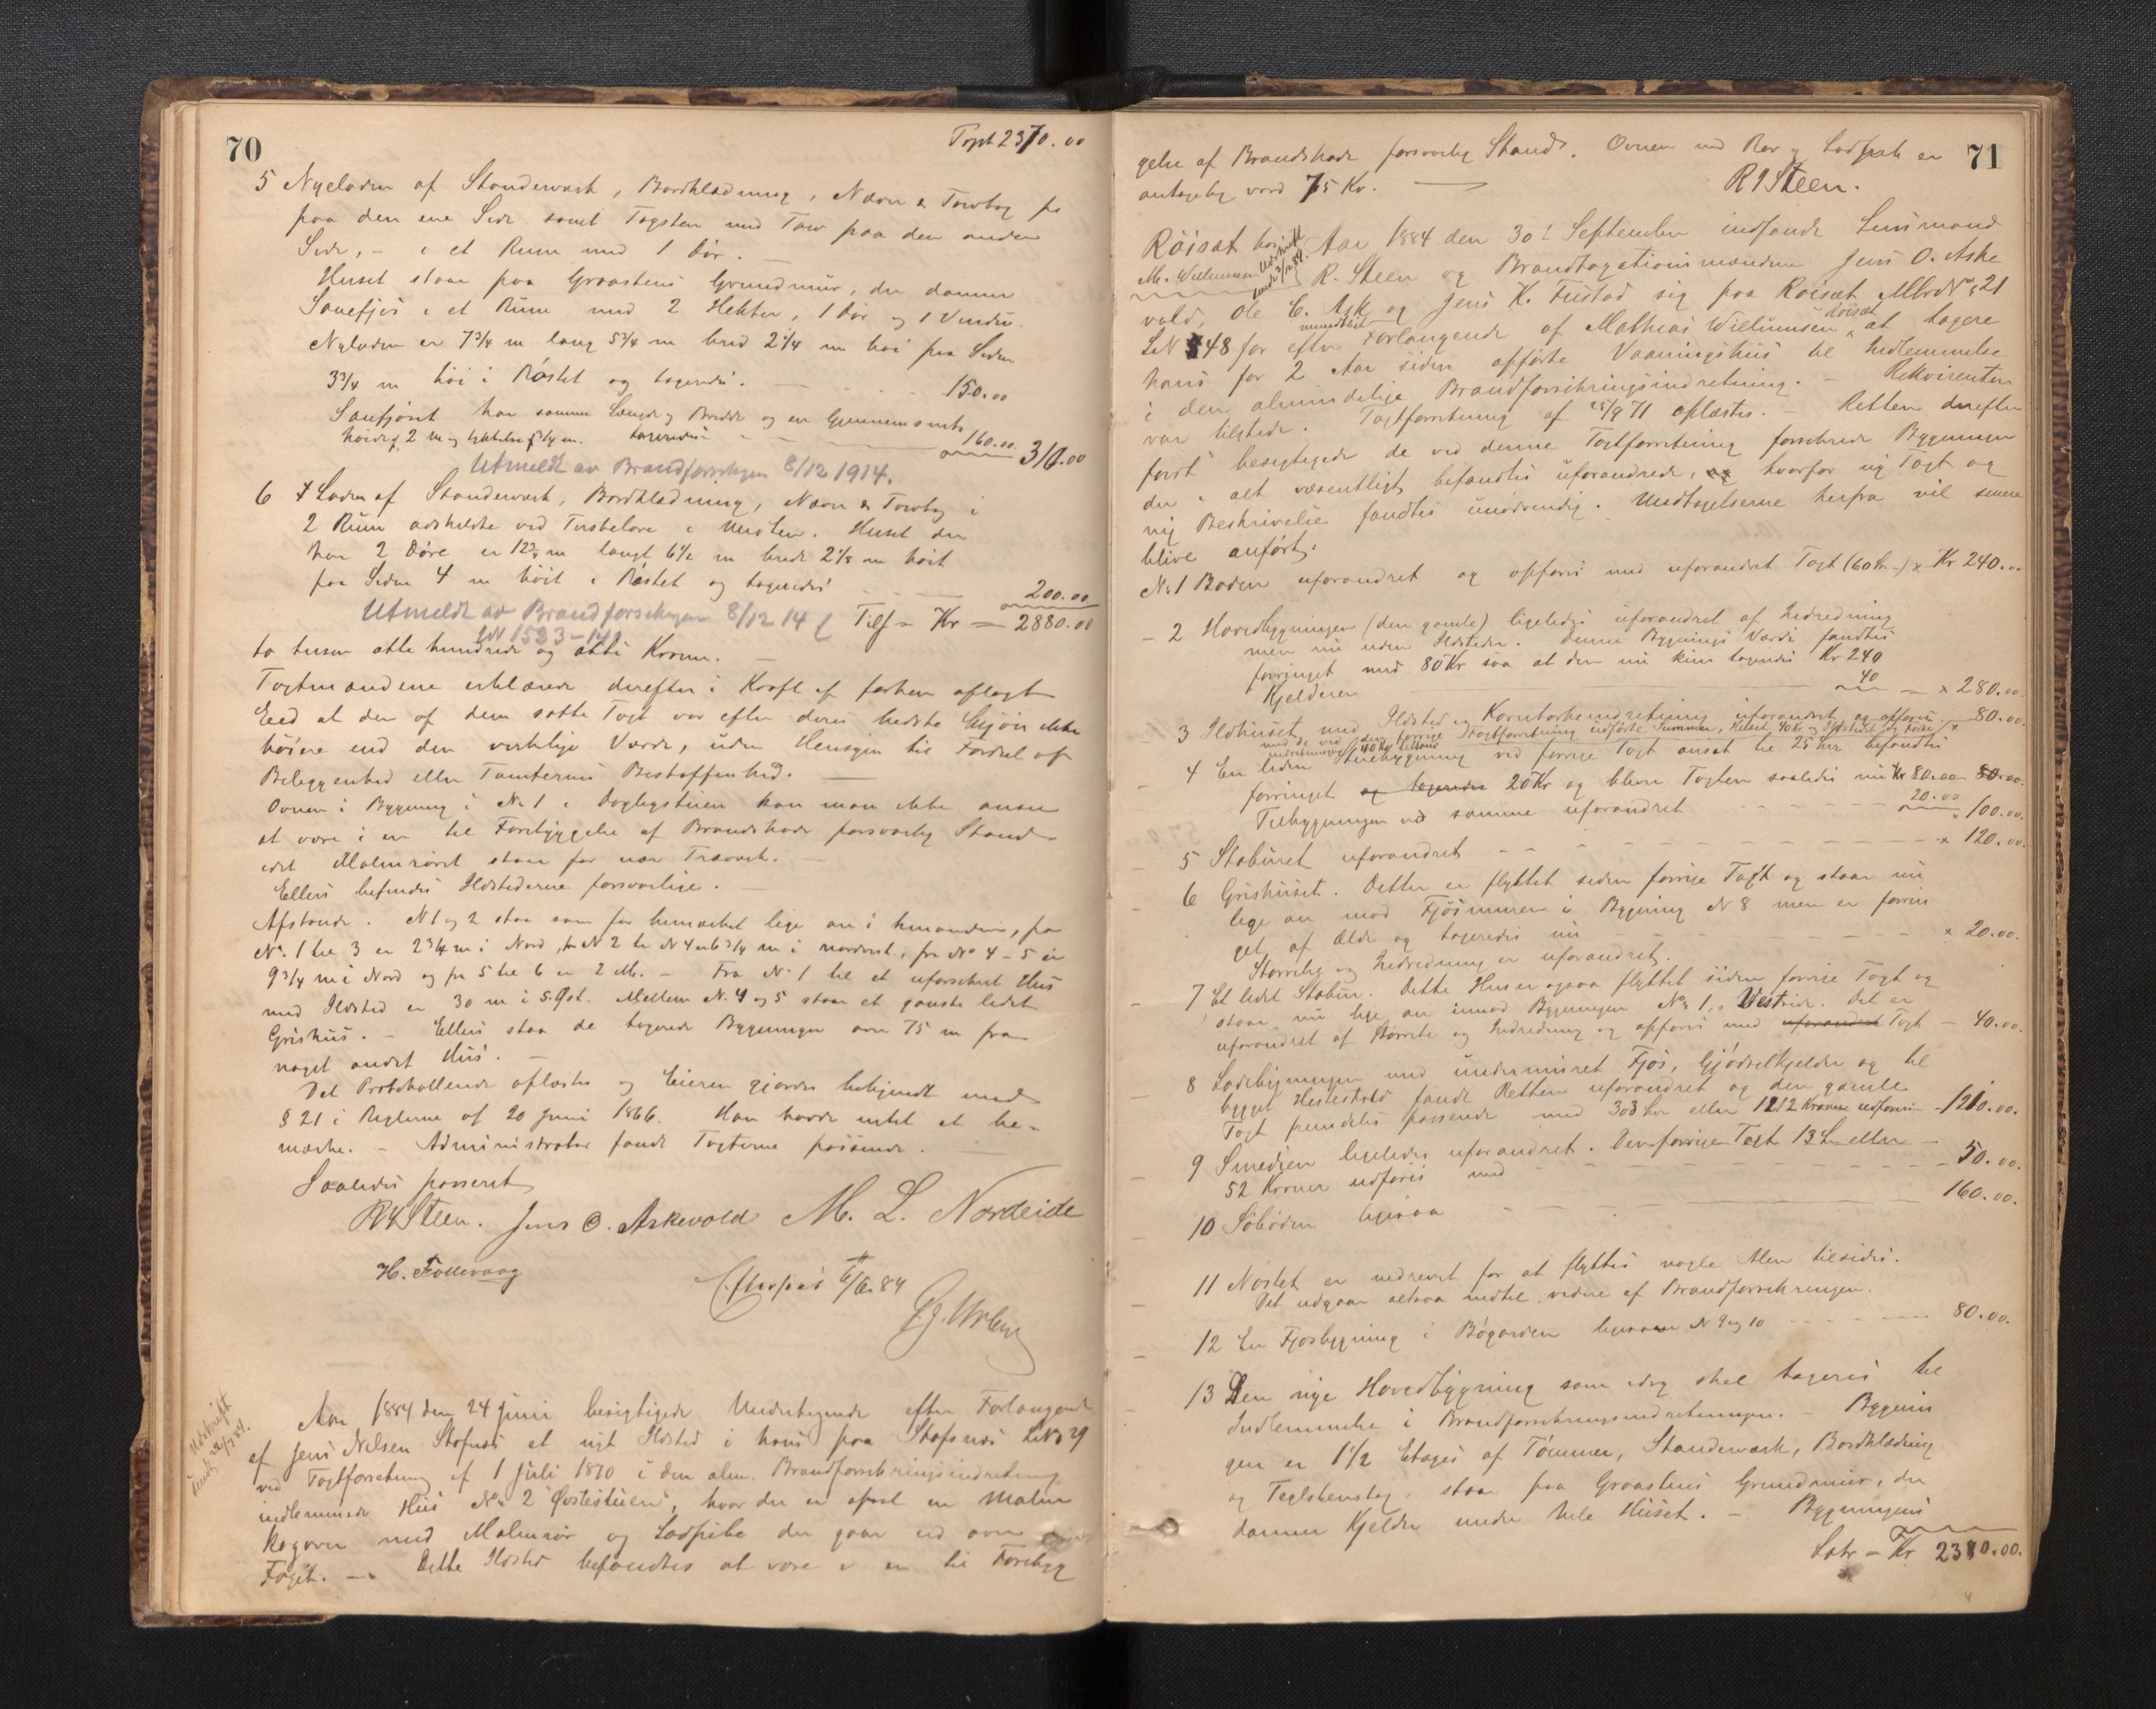 70
Trpt 2370.00
5 Nyeladen af Standerværk, Bordklædning, Næver & Torvtag paa
paa den ene Side samt Tagsten med Tro paa den anden
Side, - i et Rum med 1 Dør. -
Huset staar paa Graastens Grundmur, der danner
Sauefjøs i et Rum med 2 Hekker, 1 Dør og 1 Vindu.
Nyladen er 7 3/4 m lang 5 3/4 m bred 2 1/4 m høi paa Siden
3 3/4 m høi i Røstet og taxeredes. - - - 150.00
Sauefjøset har samme Længde og Bredde og en Gjennemsnits
høide af 2 m og taxeredes - - 160.00 310.00
Utmeldt av Brandforsikringen 8/12 1914.
6 Laden af Standerværk, Bordklædning, Næver & Torvtag i
2 Rum adskildte ved Treskelave i Midten. Huset der
har 2 Døre er 12 3/4 m langt 6 1/2 m bredt 2 1/8 m høit
paa Siden 4 m høit i Røstet og taxeredes - - - 200.00
Utmeldt av Brandforsikringen 8/12 14 Tils - Kr - 2880.00
LN 1523-14
to tusen otte hundrede og otti Kroner. -
Taxtmændene erklærede derefter i Kraft af forhen aflagt
Eed at den af dem satte Taxt var efter deres bedste Skjøn ikke
høiere end den virkelige Værdi, uden Hensyn til Fordel af
Beliggenhed eller Tomternes Beskaffenhed. -
Ovnen i Bygning i No 1 i Dagligstuen kan man ikke anse
at være i en til Forebyggelse af Brandskade forsvarlig Stand
idet Malmrøret staar for nær Træværk. -
Ellers befindes Ildstederne forsvarlige. -
Afstande. N 1 og 2 staa som før bemærket lige an i hinanden, fra
No 1 til 3 er 2 3/4 m i Nord, fra N 2 til N 4 er 6 3/4 m i nordvest, fra No 4 - 5 er
9 3/4 m i Nord og fra 5 til 6 er 2 M. - Fra No 1 til et uforsikret Hus
med Ildsted er 30 m i S.Øst. Mellem N. 4 og 5 staar et ganske lidet
Grishus. - Ellers staa de taxerede Bygninger over 75 m fra
noget andet Hus. -
Det Protokollerede oplæstes og Eieren gjordes bekjendt med
§ 21 i Reglerne af 20 Juni 1866. Han havde intet at be-
mærke. - Administrator fandt Taxterne passende. -
Saaledes passeret
R Steen. Jens O. Askevold M. L. Nordeide
H. Follevaag
Efterseet 6/6 84
Udskrift
sendt 22/7 84.
Aar 1884 den 24 Juni besigtigede Undertegnede efter Forlangende
af Jens Nilsen Stafnæs et nyt Ildsted i hans paa Stafsnæs LN 29
ved Taxtforretning af 1 Juli 1870 i den alm. Brandforsikringsindretning
indlemmede Hus No 2 "Østestuen", hvor der er opsat en Malm
kogovn med Malmrør og Ladpibe der gaar ud over
Taget. -. Dette Ildsted befandtes at være i en til Forebyg
71
gelse af Brandskade forsvarlig Stand. Ovnen med Rør og Ladpibe er
antagelig værd 75 Kr. -
R Steen.
Röisæt hos
M. Willumsen
Udskrift
sendt 3/10 84.
Aar 1884 den 30t September indfandt Lensmand
R. Steen og Brandtaxationsmændene Jens O. Aske
vold, Ole C. Ask og Jens K. Tistad sig paa Röisæt MNo 21
LN 48 for efter mundtligt Forlangende af Mathias Willumsen Röisæt at taxere
hans for 2 Aar siden opførte Vaaningshus til Indlemmelse
i den almindelige Brandforsikringsindretning. - Rekvirenten
var tilstede. Taxtforretning af 25/9 71 oplæstes. - Retten derefter
først besigtigede de ved denne Taxtforretning forsikrede Bygninger
der i alt væsentligt befandtes uforandrede, og hvorfor ny Taxt og
ny Beskrivelse fandtes unødvendig. Undtagelserne herfra vil senere
blive anført:
No 1 Boden uforandret og opføres med uforandret Taxt (60 Kr -) x Kr 240.00
- 2 Hovedbygningen (den gamle) ligeledes uforandret af Indredning
men nu uden Ildsteder. Denne Bygnings Værdi fandtes
forringet med 80 Kr saa at den nu kun taxeredes Kr 240
Kjelderen 40 - x 280.00.
3 Ildhuset med Ildsted og Korntørkeindretning uforandret og opføres 80.00.
med de ved den forrige Taxtforretning udførte Summer,
4 En liden Stuebygning ved forrige Taxt ansat til 25 Kr befandtes
forringet og taxeredes 20 Kr og bliver Taxten saaledes nu Kr 80.00
Tilbygningen ved samme uforandret - - - 20.00 x 100.00.
5 Stabburet uforandret - - - - - - - x 120.00.
6 Grishuset. Dette er flyttet siden forrige Taxt og staar nu
lige an mod Fjøsmuren i Bygning N 8 men er forrin
get af Ælde og taxeredes nu - - - - x 20.00.
Størrelse og Indredning er uforandret.
7 Et lidet Stabur. Dette Hus er ogsaa flyttet siden forrige Taxt og
staar nu lige an imod Bygningen No 1, Vestside. Det er
uforandret af Størrelse og Indredning og opføres med uforandret Taxt - 40.00.
8 Ladebygningen med undermuret Fjøs, Gjødselkjelder og til
bygget Hestestald fandt Retten uforandret og den gamle
Taxt fremdeles passende med 303 Spr eller 1212 Kroner udføres - 1210.00.
9 Smedjen ligeledes uforandret. Den forrige Taxt 13 Spr eller -
52 Kroner udføres med - - - - - 50.00.
10 Søboden ligesaa - - - 160.00.
11 Nøstet er nedrevet for at flyttes nogle Alen tilsides.
Det udgaar altsaa indtil videre af Brandforsikringen.
12 En Fjosbygning i Bøgarden ligesom N 9 og 10 - - - - 80.00.
13 Den nye Hovedbygning som idag skal taxeres til
Indlemmelse i Brandforsikringsindretningen. - Bygnin
gen er 1 1/2 Etages af Tømmer, Standerværk, Bordklædning
og Teglstenstag, staar paa Graastens Grundmur, der
danner Kjelder under hele Huset. - Bygningens
Latr - Kr 2380.00.